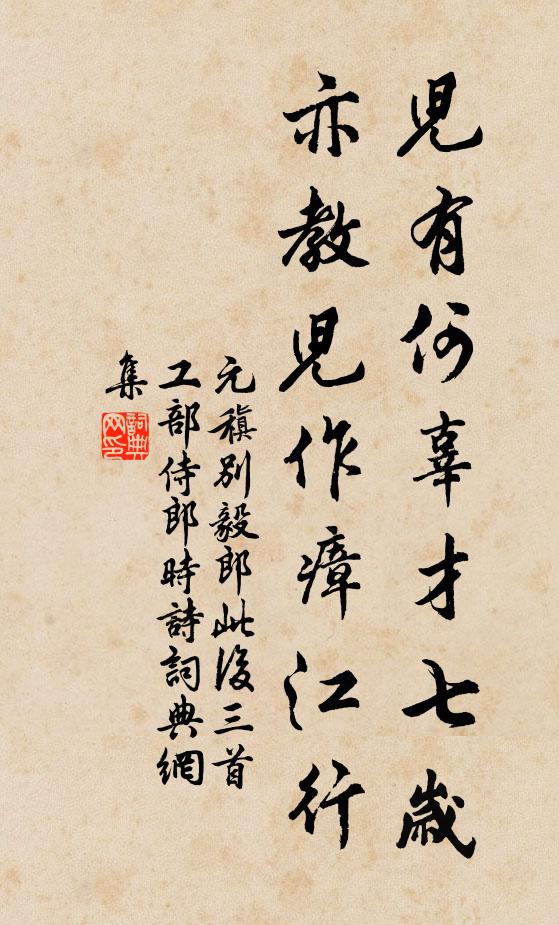 児有何辜才七歲
亦教児作瘴江行
元稹別毅郎此後三首
工部侍郎時詩詞典網
集
詞典網印